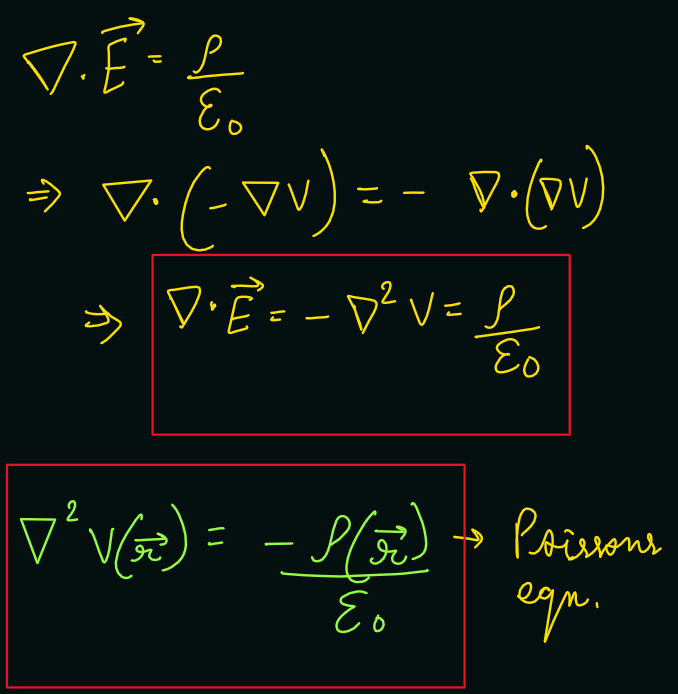 ∇·E⃗ = ρ/ε₀
⇒ ∇·(-∇V) = - ∇·(∇V)
⇒ ∇·E⃗ = - ∇²V = ρ/ε₀
∇²V(r⃗) = - ρ(r⃗)/ε₀ → Poissons
eqn.